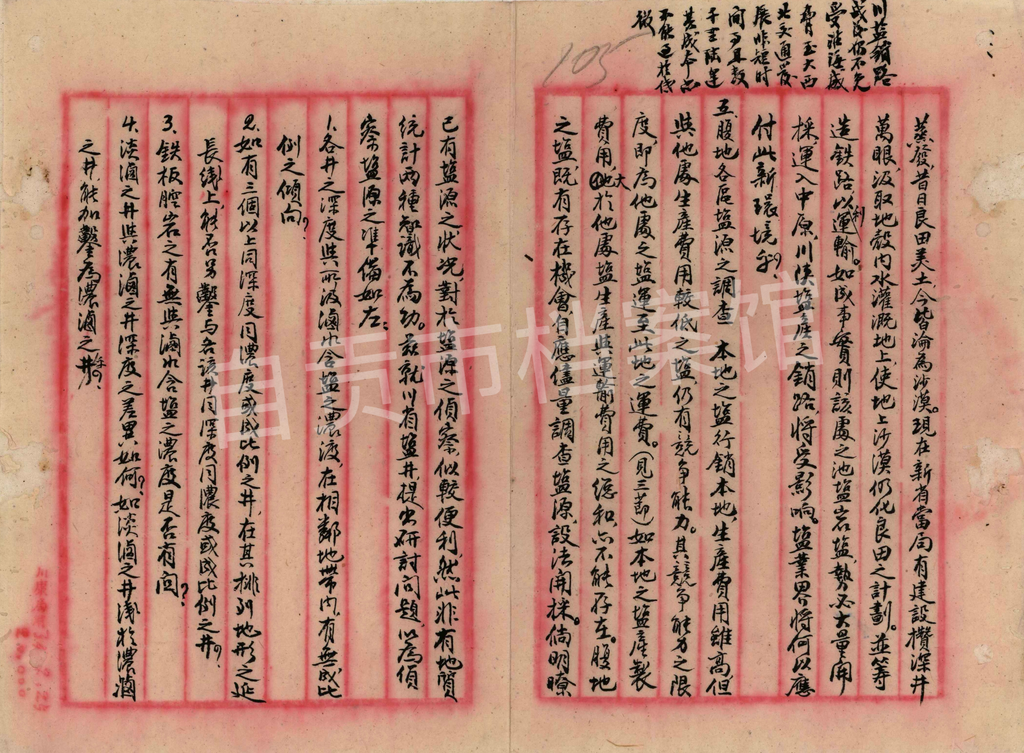 川盐销路
或仍不免
受淮海威
脅至大西
北交通發
展非短时
间可具数
千里陆運
其成本必
不能過於低
微
105
蒸發，昔日良田美土今皆淪為沙漠。現在新有當局有建設攢深井
萬眼，汲取地殼内水灌溉地上，使地上沙漠仍化良田之計劃。並筹
造鉄路以利運輸。如成事實則該處之池塩岩塩，勢必大量開
採，運入中原，川陕塩產之銷路，將受影响。塩業界將何以應
付此新環境乎？
五、腹地各區塩源之調查 本地之塩行銷本地，生產費用雖高，但
與他處生產費用較低之塩仍有競争能力。其競争能力之限
度即為他處之塩運至此地之運費。（見三節）如本地之塩產製
費用大於他處塩生產與運輸費用之總和，亦不能存在。腹地
之塩，既有存在機會，自應儘量調查塩源，設法開採。倘明瞭
已有塩源之状况，對於塩源之偵察似較便利，然此非有地質
統計两種智識不為功。茲就川省塩井提出研討问題，以為偵
察塩源之準備如左：
1.各井之深度與所汲滷水含塩之濃度，在相鄰地帶内，有無成比
例之傾向？
2.如有三個以上同深度同濃度或成比例之井，在其排列地形之延
長线上，能否另鑿与各該井同深度同濃度或成比例之井？
3.鉄板腔岩之有無與滷水含塩之濃度是否有関？
4.淡滷之井與濃滷之井深度之差異如何？如淡滷之井浅於濃滷
之井，能加鑿為濃滷之井否？
自贡市档案馆